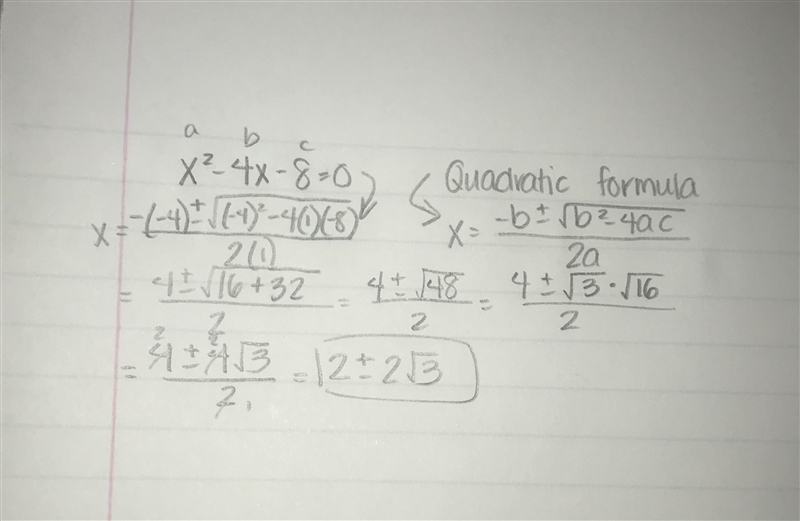 a b c
x² - 4x - 8 = 0 Quadratic formula
x = -(-4) ± √(-4)² - 4(1)(-8) / 2(1) x = -b ± √b² - 4ac / 2a
= 4 ± √16 + 32 / 2 = 4 ± √48 / 2 = 4 ± √3 · √16 / 2
= 4 ± 4√3 / 2 = 2 ± 2√3